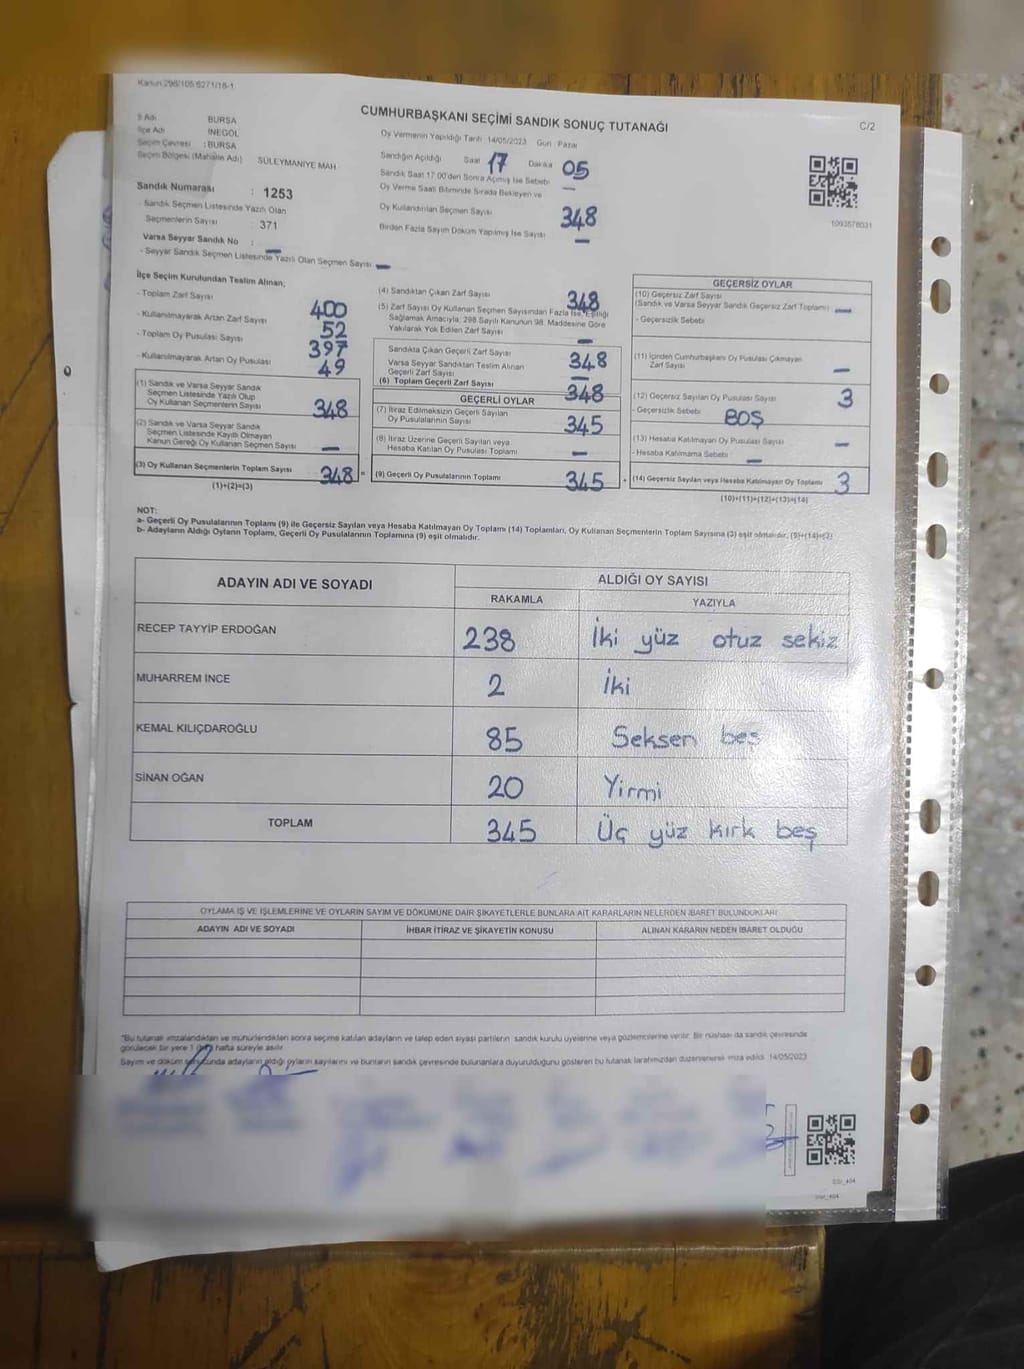 Kanun 298/105 6271/18-1
CUMHURBAŞKANI SEÇİMİ SANDIK SONUÇ TUTANAĞI
C/2
İl Adı BURSA
İlçe Adı İNEGÖL
Seçim Çevresi : BURSA
Seçim Bölgesi (Mahalle Adı) SÜLEYMANİYE MAH
Sandık Numarası : 1253
Sandık Seçmen Listesinde Yazılı Olan
Seçmenlerin Sayısı : 371
Varsa Seyyar Sandık No : —
- Seyyar Sandık Seçmen Listesinde Yazılı Olan Seçmen Sayısı —
Oy Vermenin Yapıldığı Tarih 14/05/2023 Gün : Pazar
Sandığın Açıldığı Saat 17 Dakika 05
Sandık Saat 17:00'den Sonra Açılmış İse Sebebi —
Oy Verme Saati Bitiminde Sırada Bekleyen ve
Oy Kullandırılan Seçmen Sayısı 348
Birden Fazla Sayım Döküm Yapılmış İse Sayısı —
1093578031
İlçe Seçim Kurulundan Teslim Alınan;
- Toplam Zarf Sayısı 400
- Kullanılmayarak Artan Zarf Sayısı 52
- Toplam Oy Pusulası Sayısı 397
- Kullanılmayarak Artan Oy Pusulası 49
(1) Sandık ve Varsa Seyyar Sandık
Seçmen Listesinde Yazılı Olup
Oy Kullanan Seçmenlerin Sayısı 348
(2) Sandık ve Varsa Seyyar Sandık
Seçmen Listesinde Kayıtlı Olmayan
Kanun Gereği Oy Kullanan Seçmen Sayısı —
(3) Oy Kullanan Seçmenlerin Toplam Sayısı 348 =
(1)+(2)=(3)
(4) Sandıktan Çıkan Zarf Sayısı 348
(5) Zarf Sayısı Oy Kullanan Seçmen Sayısından Fazla İse, Eşitliği
Sağlamak Amacıyla; 298 Sayılı Kanunun 98. Maddesine Göre
Yakılarak Yok Edilen Zarf Sayısı —
Sandıkta Çıkan Geçerli Zarf Sayısı 348
Varsa Seyyar Sandıktan Teslim Alınan
Geçerli Zarf Sayısı —
(6) Toplam Geçerli Zarf Sayısı 348
GEÇERLİ OYLAR
(7) İtiraz Edilmeksizin Geçerli Sayılan
Oy Pusulalarının Sayısı 345
(8) İtiraz Üzerine Geçerli Sayılan veya
Hesaba Katılan Oy Pusulası Toplamı —
(9) Geçerli Oy Pusulalarının Toplamı 345 +
GEÇERSİZ OYLAR
(10) Geçersiz Zarf Sayısı
(Sandık ve Varsa Seyyar Sandık Geçersiz Zarf Toplamı) —
- Geçersizlik Sebebi
(11) İçinden Cumhurbaşkanı Oy Pusulası Çıkmayan
Zarf Sayısı —
(12) Geçersiz Sayılan Oy Pusulası Sayısı 3
- Geçersizlik Sebebi BOŞ
(13) Hesaba Katılmayan Oy Pusulası Sayısı —
- Hesaba Katılmama Sebebi —
(14) Geçersiz Sayılan veya Hesaba Katılmayan Oy Toplamı 3
(10)+(11)+(12)+(13)=(14)
NOT:
a- Geçerli Oy Pusulalarının Toplamı (9) ile Geçersiz Sayılan veya Hesaba Katılmayan Oy Toplamı (14) Toplamları, Oy Kullanan Seçmenlerin Toplam Sayısına (3) eşit olmalıdır. (9)+(14)=(3)
b- Adayların Aldığı Oyların Toplamı, Geçerli Oy Pusulalarının Toplamına (9) eşit olmalıdır.
ADAYIN ADI VE SOYADI ALDIĞI OY SAYISI
RAKAMLA YAZIYLA
RECEP TAYYİP ERDOĞAN 238 İki yüz otuz sekiz
MUHARREM İNCE 2 İki
KEMAL KILIÇDAROĞLU 85 Seksen beş
SİNAN OĞAN 20 Yirmi
TOPLAM 345 Üç yüz kırk beş
OYLAMA İŞ VE İŞLEMLERİNE VE OYLARIN SAYIM VE DÖKÜMÜNE DAİR ŞİKAYETLERLE BUNLARA AİT KARARLARIN NELERDEN İBARET BULUNDUKLARI
ADAYIN ADI VE SOYADI İHBAR İTİRAZ VE ŞİKAYETİN KONUSU ALINAN KARARIN NEDEN İBARET OLDUĞU
"Bu tutanak imzalandıktan ve mühürlendikten sonra seçime katılan adayların ve talep eden siyasi partilerin sandık kurulu üyelerine veya gözlemcilerine verilir. Bir nüshası da sandık çevresinde
görülecek bir yere 1 hafta süreyle asılır.
Sayım ve döküm sonucunda adayların aldığı oyların sayılarını ve bunların sandık çevresinde bulunanlara duyurulduğunu gösteren bu tutanak tarafımızdan düzenlenerek imza edildi. 14/05/2023